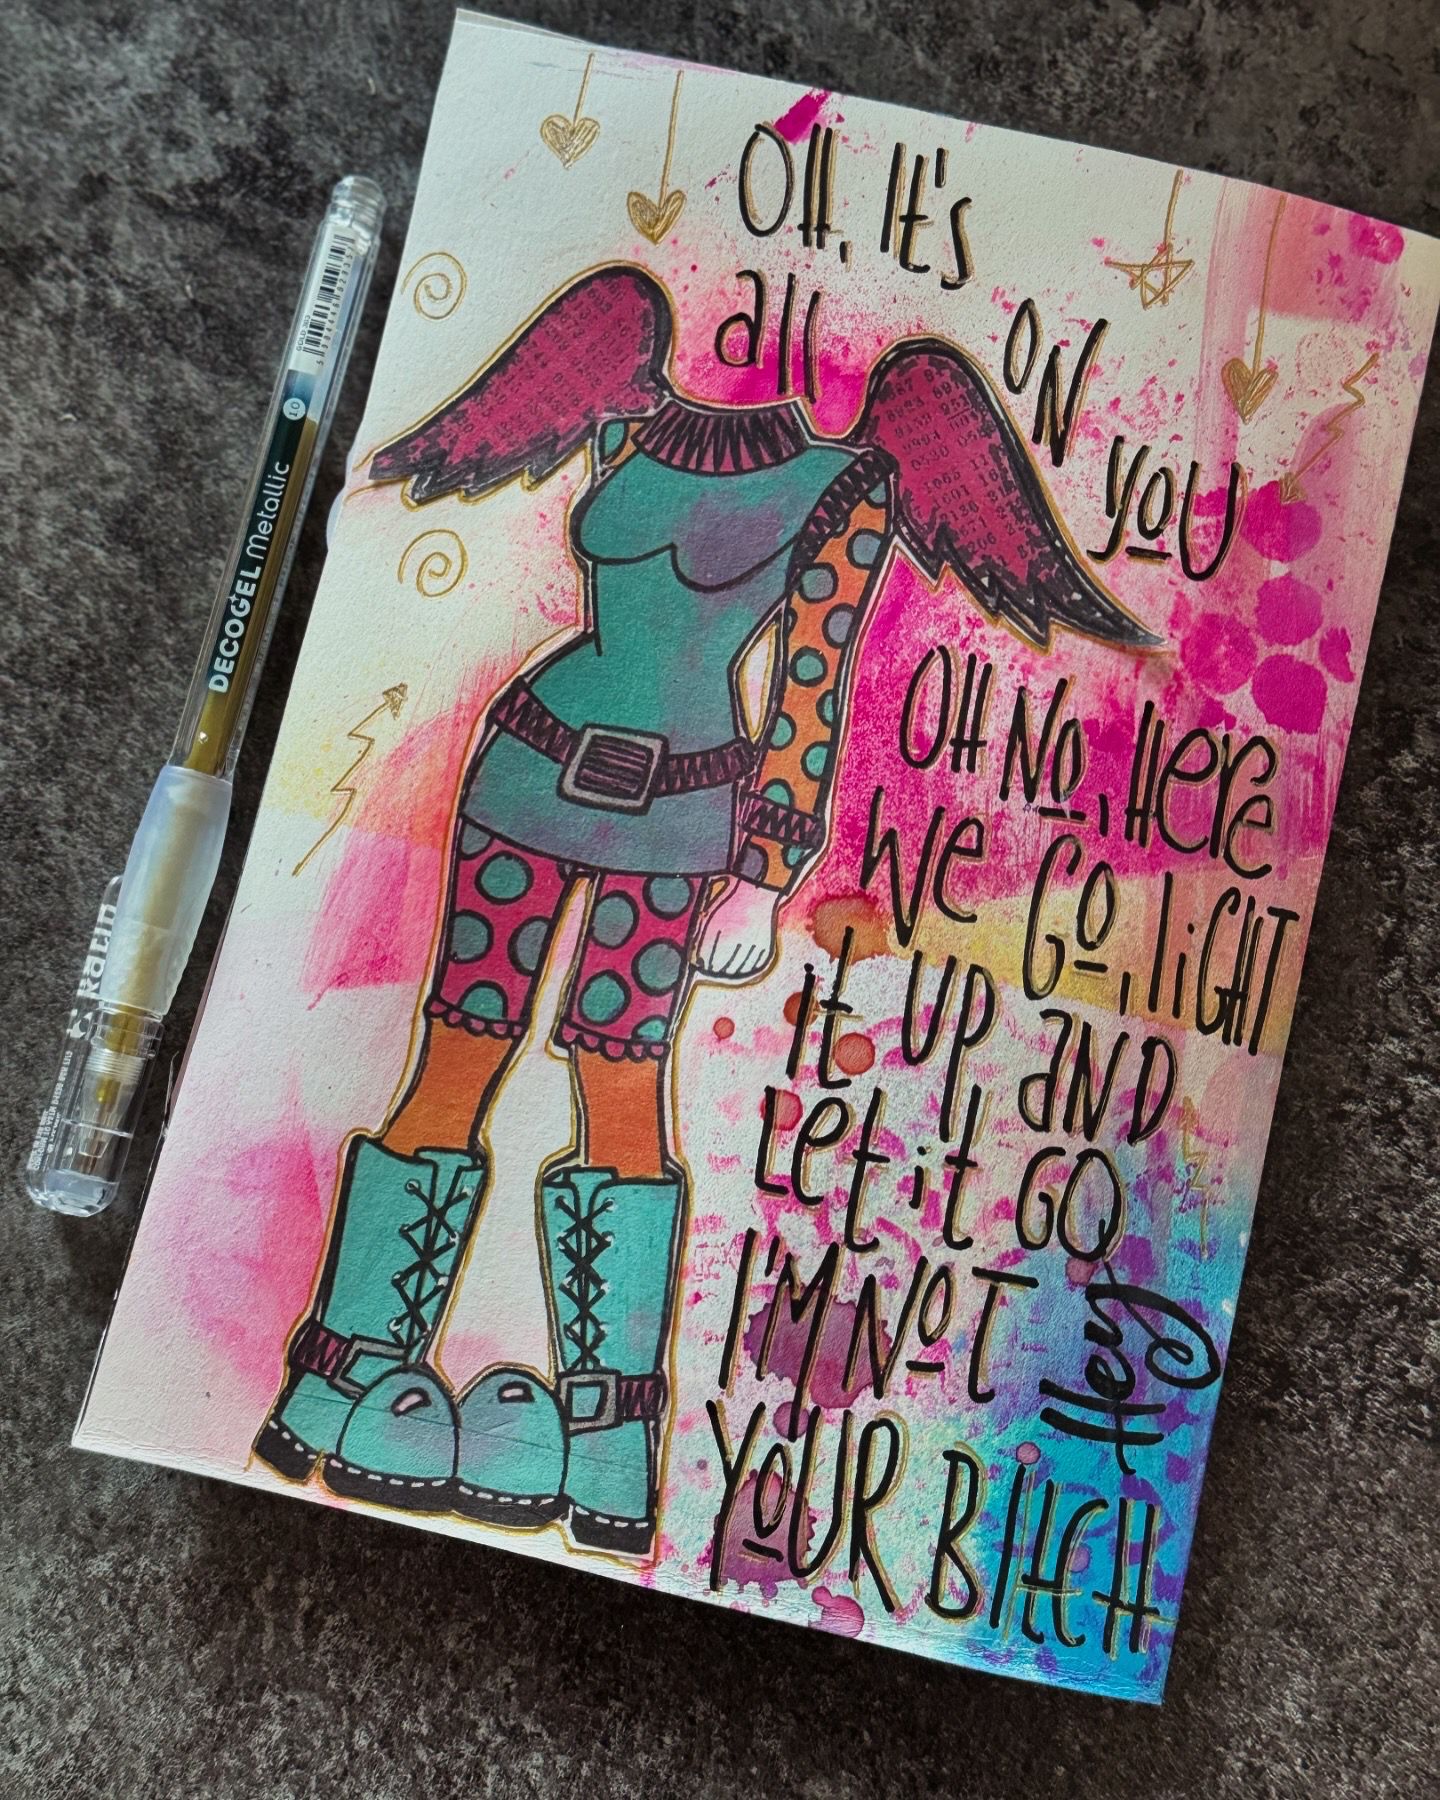 OH, It's
all
ON
YOU
OH NO, Here
we GO, liGHT
it up, aND
Let it GO
I'M NOT
YOUR BITCH
Hey
DECOGEL metallic
1.0
karin